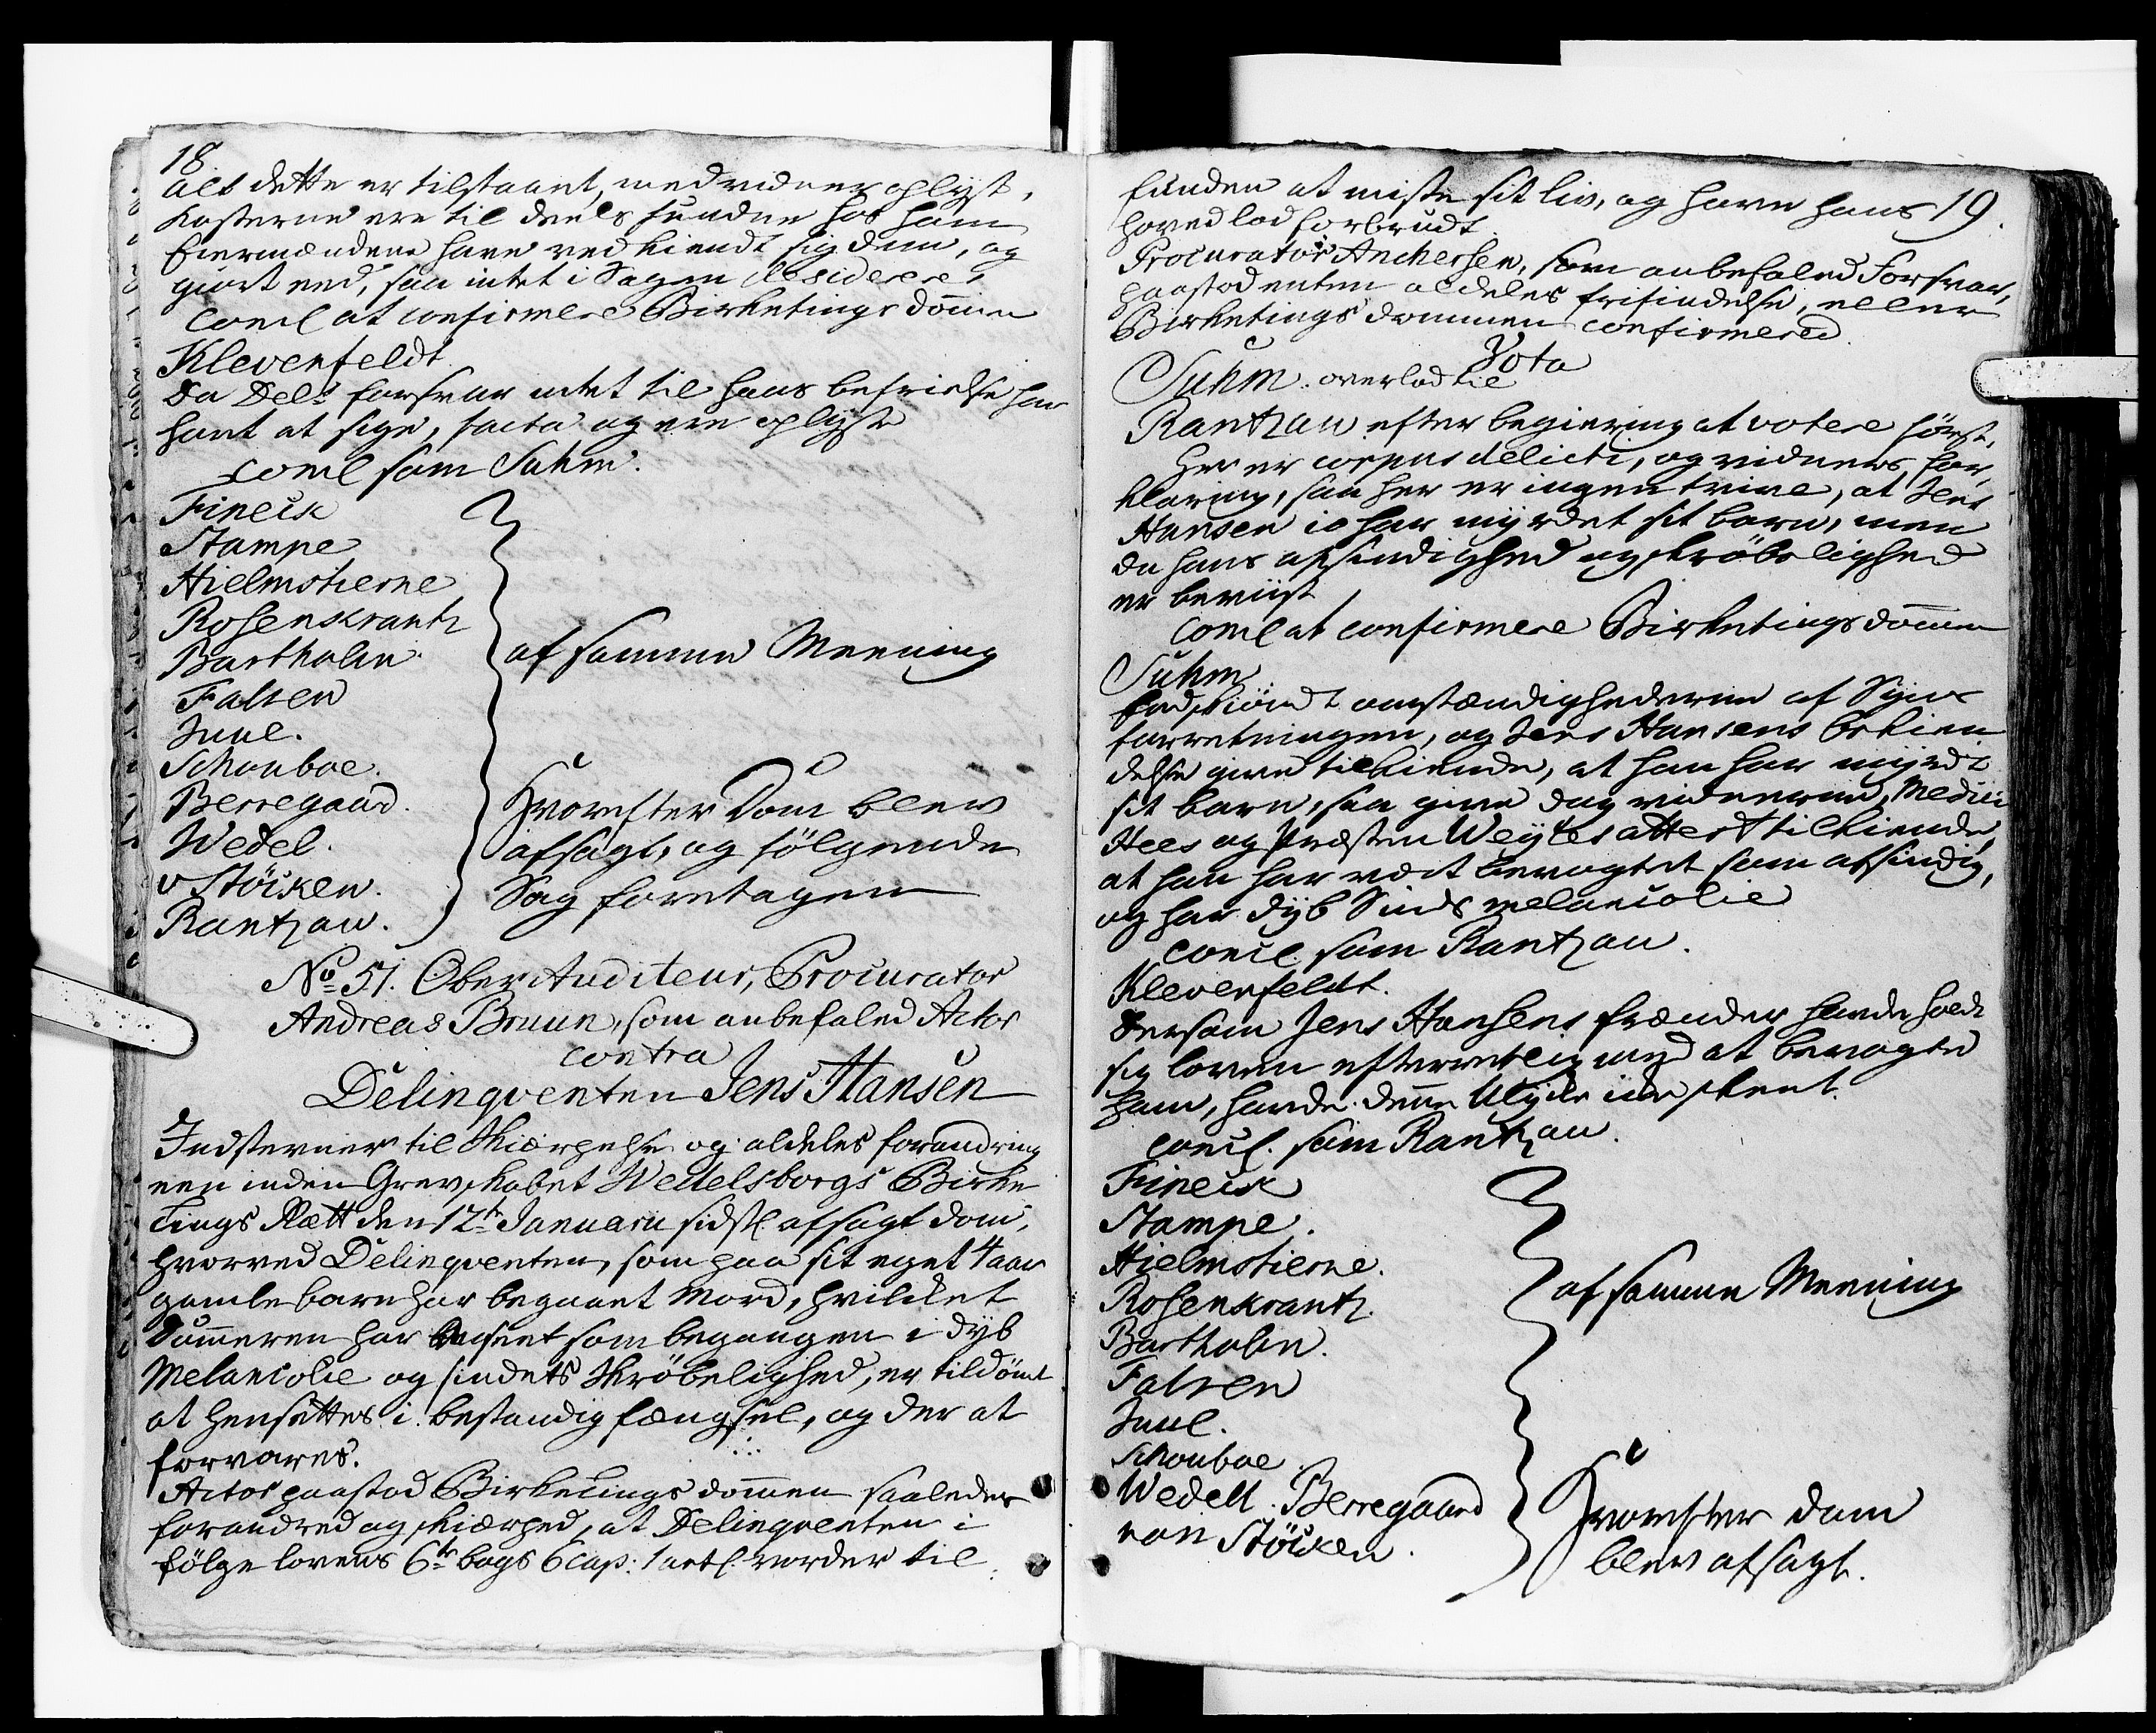 18.
alt dette er tilstaaet, med vidner oplyst,
kosterne ere til deels fundne hos ham
Eiermændene have vedkiendt sig dem, og
giort eed, saa intet i Sagen desiderere
concl at confirmere Birketings domen
Klevenfeldt.
Da Del: forsvar intet til hans befrielse har
havt at sige, facta og ere oplyste
concl som Suhm.
Fineck
Stampe
Hielmstierne
Rosenkrantz
Bartholin
Falsen
Juul.
Schouboe.
Berregaard.
Wedel.
v Stöcken.
Rantzau.
af samme Meening
Hvorefter Dom blev
afsagt, og følgende
Sag foretagen
No 51. Ober Auditeur, Procurator
Andreas Bruun, som anbefaled Actor
contra
Delinqventen Jens Hansen
Indstevner til Skiærpelse og aldeles forandring
een inden Grevskabet Wedelsborgs Birke
Tings Rætt den 12te Januarii sidstl afsagt dom,
hvorved Delinqventen, som paa sit eget 4 aar
gamle barn har begaaet Mord, hvilket
Dommeren har anseet som begangen i dyb
Melancolie og sindets Skrøbelighed, er tildømt
at hensettes i bestandig fængsel, og der at
forvares.
Actor paastod Birketings dommen saaledes
forandred og skiærped, at Delinqventen i
følge lovens 6te bogs 6 cap: 1 artl. vorder til
19.
funden at miste sit liv, og have hans
hovedlod forbrudt.
Procurator Anchersen, som anbefaled Forsvar,
paastod enten aldeles frifindelse, eller
Birketings dommen confirmered.
Vota
Suhm. overlod til
Rantzau efter begiering at votere først,
Her er corpus delicti, og vidners for
klaring, saa her er ingen tvivl, at Jens
Hansen jo har myrdet sit barn, men
da hans afsindighed og skrøbelighed
er beviist
concl at confirmere Birketings domen
Suhm
Endskiøndt omstændighederne af Syns
forretningen, og Jens Hansens bekien
delse give tilkiende, at han har myrdt
sit barn, saa give dog vidnerne, Medici
Hees og Præsten Weytes attest tilkiende,
at han har vært bevogtet som afsindig,
og har dyb Sinds melancolie
concl. som Rantzau.
Klevenfeldt.
Dersom Jens Hansens frænder havde holdt
sig loven efterrettelig med at bevogte
ham, havde denne Ulykke ikke skeet.
concl. som Rantzau.
Fineck
Stampe.
Hielmstierne.
Rosenkrantz.
Bartholin.
Falsen
Juul.
Schouboe
Wedell. Berregaard
von Stöcken.
af samme Meening
Hvorefter dom
blev afsagt.